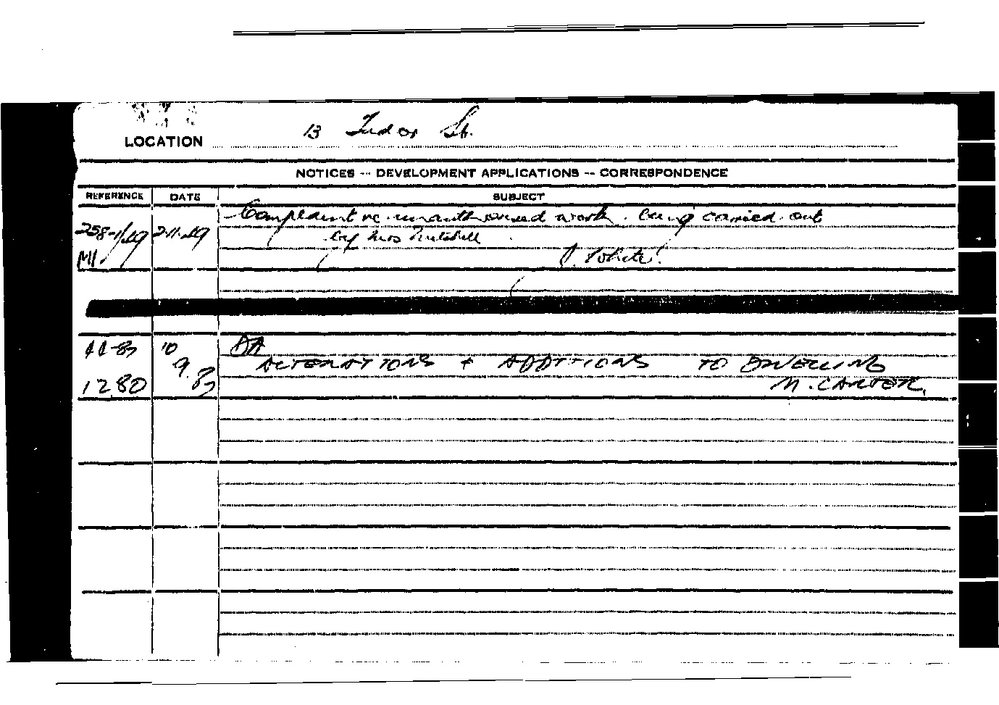 LOCATION 13 Tudor St.
NOTICES -- DEVELOPMENT APPLICATIONS -- CORRESPONDENCE
REFERENCE DATE SUBJECT
Complaint re unauthorised work being carried out
258-1/49 2-11-49 by Mrs Mitchell
M1 White
44-87 10 DA
9. ALTERATIONS + ADDITIONS TO DWELLING
1280 87 M. CARTER.